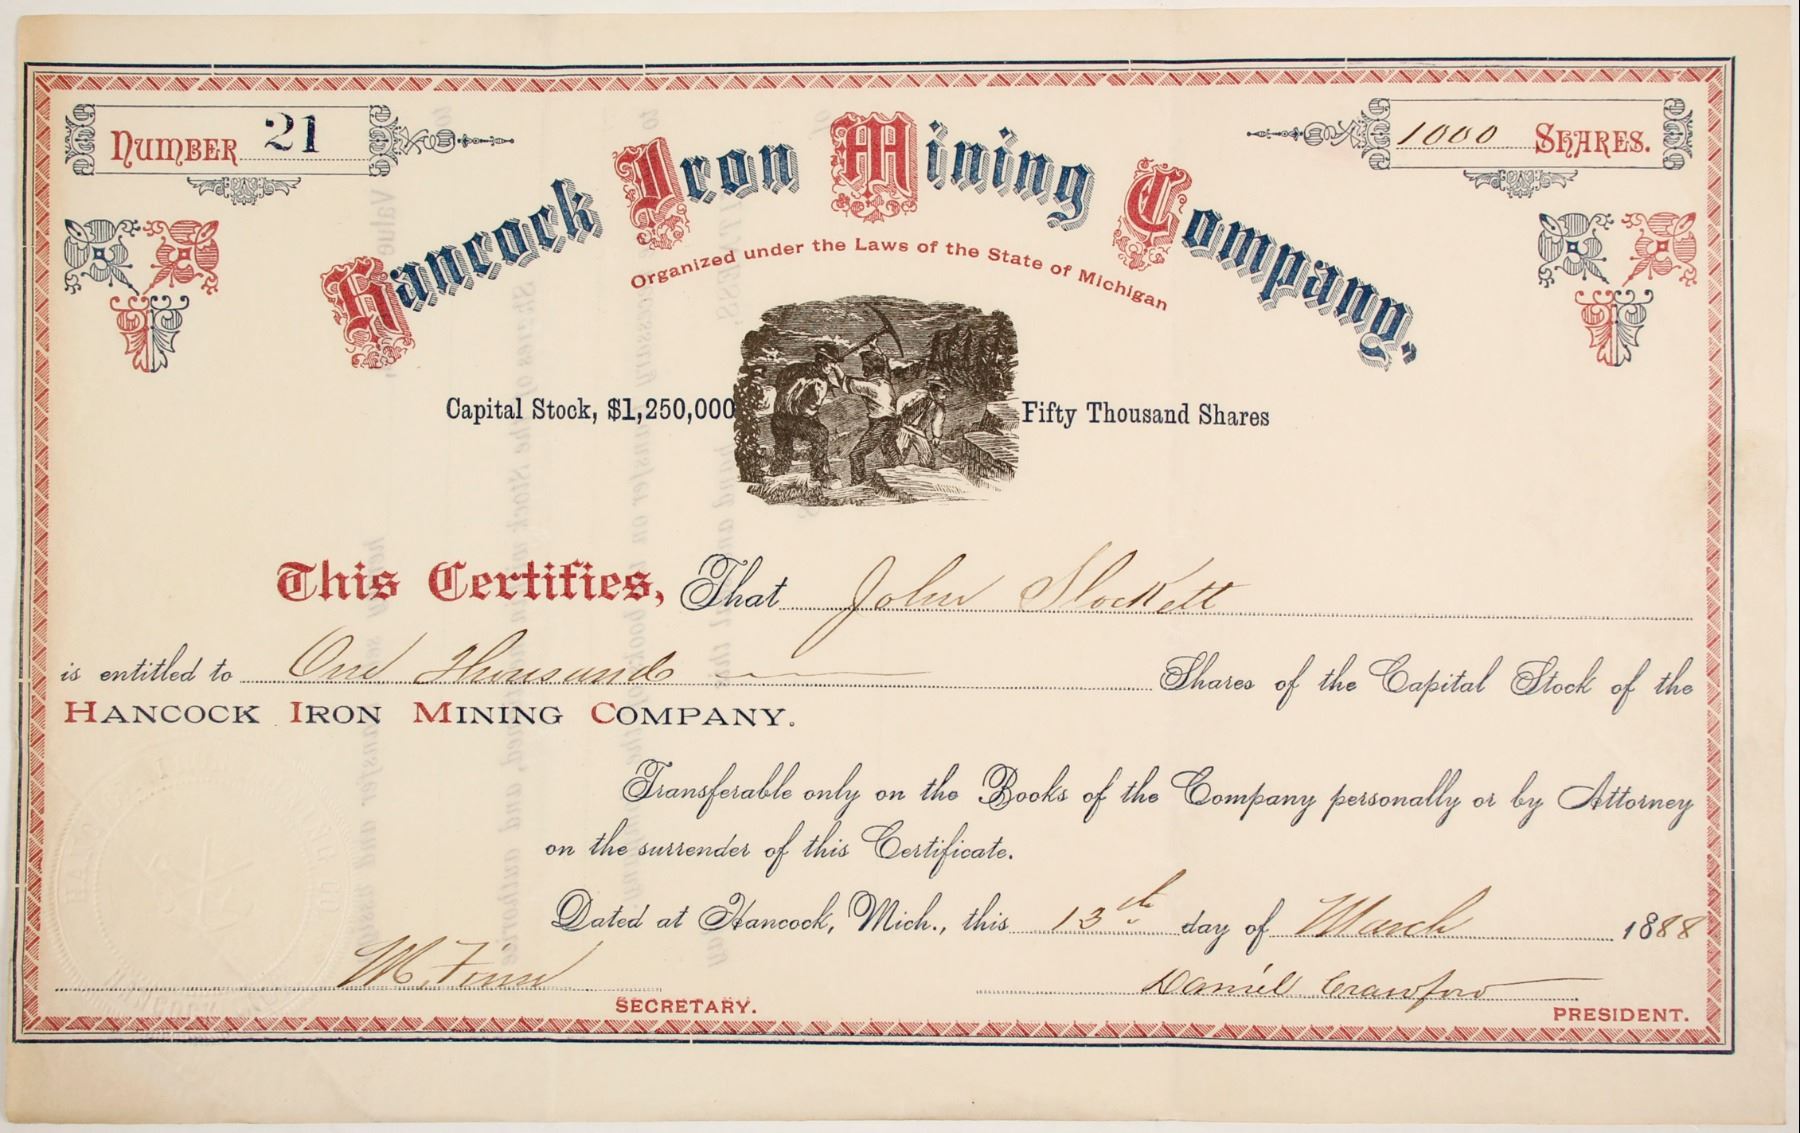 NUMBER 21
1000 SHARES.
Hancock Iron Mining Company,
Organized under the Laws of the State of Michigan
Capital Stock, $1,250,000 Fifty Thousand Shares
This Certifies, That John Slockett
is entitled to One Thousand Shares of the Capital Stock of the
HANCOCK IRON MINING COMPANY.
Transferable only on the Books of the Company personally or by Attorney
on the surrender of this Certificate.
Dated at Hancock, Mich., this 13th day of March 1888
M. Finn Daniel Crawford
SECRETARY. PRESIDENT.